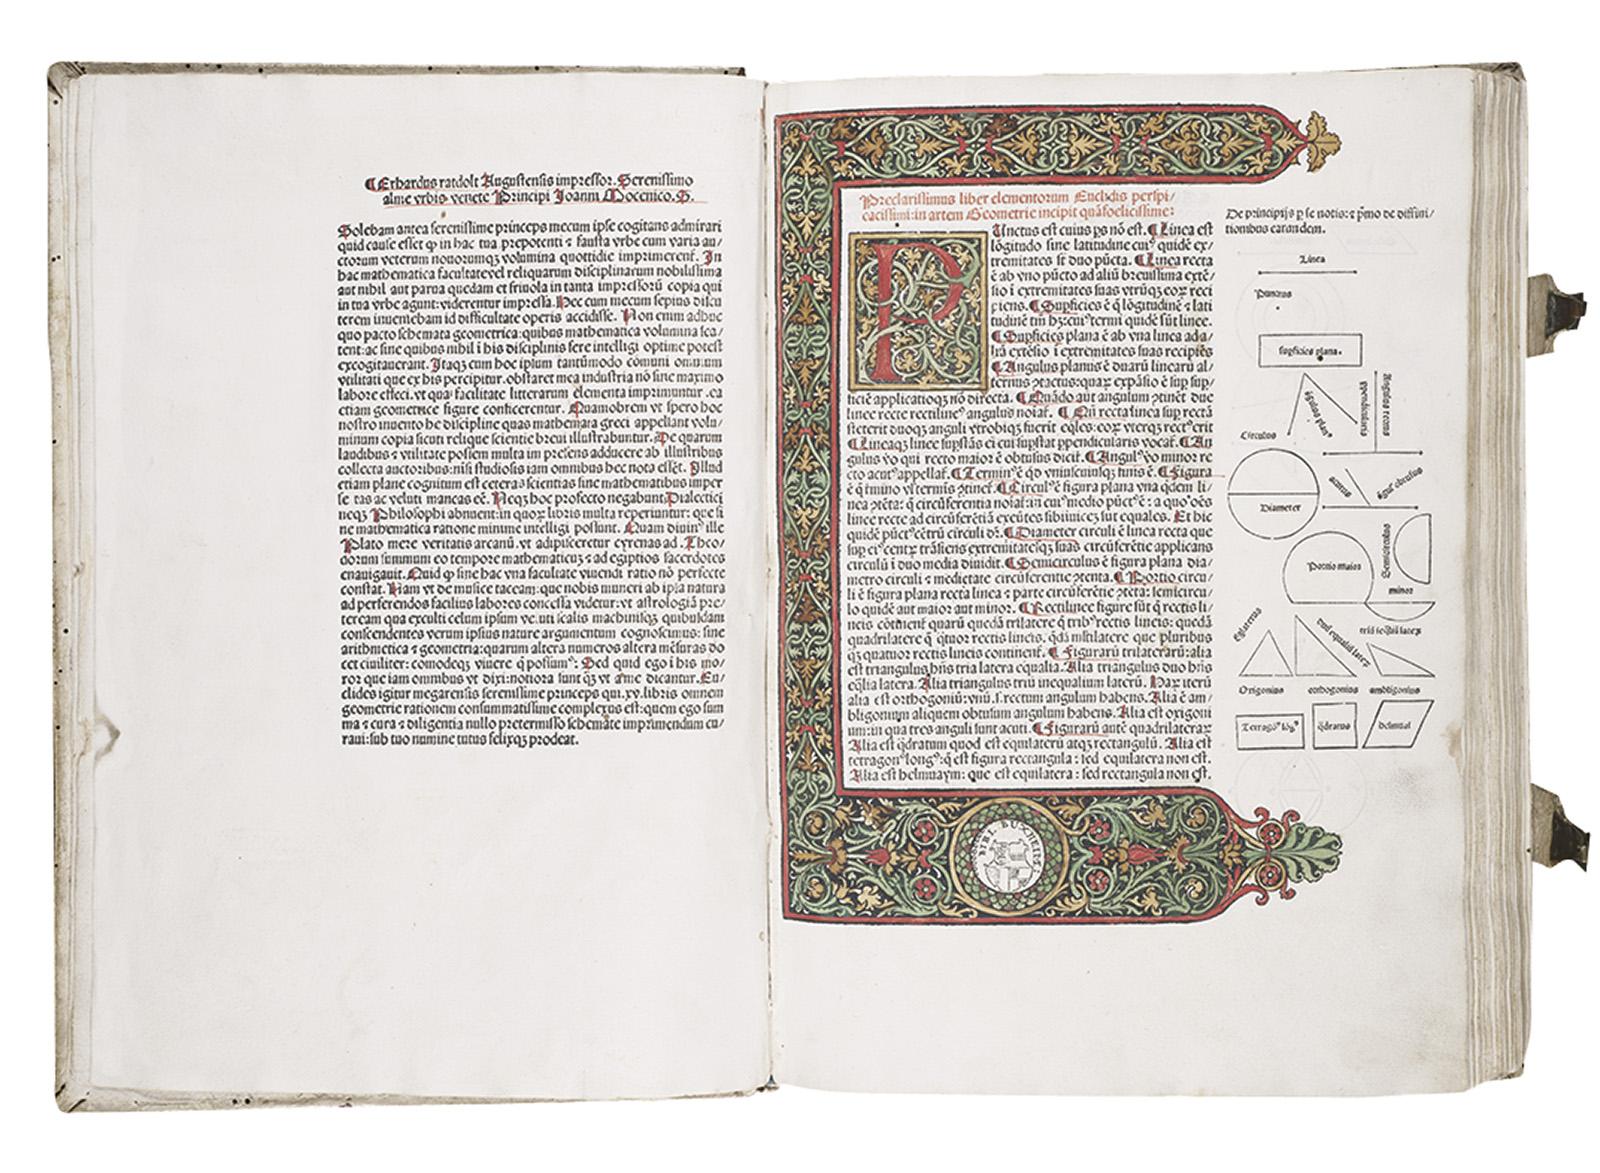 ¶Erhardus ratdolt Augustensis impressor. Serenissimo
alme vrbis venete Principi Joanni Mocenico. S.
Solebam antea serenissime princeps mecum ipse cogitans admirari
quid cause esset ꝙ in hac tua prepotenti ⁊ fausta vrbe cum varia au/
ctorum veterum nouorumqꝫ volumina quottidie imprimerent̃. In
hac mathematica facultate vel reliquarum disciplinarum nobilissima
aut nihil aut parua quedam et friuola in tanta impressorũ copia qui
in tua vrbe agunt: viderentur impressa. Hec cum mecum sepius discu
terem inueniebam id difficultate operis accidisse. Non enim adhuc
quo pacto schemata geometrica: quibus mathematica volumina sca/
tent: ac sine quibus nihil ĩ his disciplinis fere intelligi optime potest
excogitauerant. Itaqꝫ cum hoc ipsum tantũmodo cõmuni omnium
vtilitati que ex his percipitur. obstaret mea industria nõ sine maximo
labore effeci. vt qua facilitate litterarum elementa imprimuntur. ea
etiam geometrice figure conficerentur. Quamobrem vt spero hoc
nostro inuento he discipline quas mathemata greci appellant volu/
minum copia sicuti relique scientie breui illustrabuntur. De quarum
laudibus ⁊ vtilitate possem multa im presens adducere ab illustribus
collecta auctoribus: nisi studiosis iam omnibus hec nota essẽt. Illud
etiam plane cognitum est ceteras scientias sine mathematibus imper
fectas ac veluti mancas eẽ. Neqꝫ hoc profecto negabunt Dialectici
neqꝫ Philosophi abnuent: in quoꝝ libris multa reperiuntur: que si
ne mathematica ratione minime intelligi possunt. Quam diuin⁹ ille
Plato mere veritatis arcanũ. vt adipisceretur cyrenas ad. Theo/
dorum summum eo tempore mathematicuȝ ⁊ ad egiptios sacerdotes
enauigauit. Quid ꝙ sine hac vna facultate viuendi ratio nõ perfecte
constat. Nam vt de musice taceam: que nobis muneri ab ipsa natura
ad perferendos facilius labores concessa videtur: vt astrologiã pre/
teream qua exculti celum ipsum veluti scalis machinisqꝫ quibusdam
conscendentes verum ipsius nature argumentum cognoscimus: sine
arithmetica ⁊ geometria: quarum altera numeros altera mẽsuras do
cet ciuiliter: comodeqꝫ viuere q̃ possum⁹: Sed quid ego ĩ his mo/
ror que iam omnibus vt dixi: notiora sunt q̃ꝫ vt a me dicantur. Eu/
clides igitur megarensis serenissime princeps qui. xv. libris omnem
geometrie rationem consummatissime complexus est: quem ego sum
ma ⁊ cura ⁊ diligentia nullo pretermisso schemate imprimendum cu/
raui: sub tuo numine tutus felixqꝫ prodeat.
Preclarissimus liber elementorum Euclidis perspi/
cacissimi: in artem Geometrie incipit quãfoelicissime:
Punctus est cuius ps nõ est. ¶Linea est
lõgitudo sine latitudine cui⁹ quidẽ ex/
tremitates sũt duo pũcta. ¶Linea recta
ẽ ab vno pũcto ad aliũ breuissima extẽ/
sio ĩ extremitates suas vtrũqꝫ eoꝝ reci
piens. ¶Supficies ẽ q̃ lõgitudinẽ ⁊ lati
tudinẽ tm̃ hȝ: cui⁹ termi quidẽ sũt linee.
¶Supficies plana ẽ ab vna linea ad a/
liã extẽsio ĩ extremitates suas recipiẽs
¶Angulus planus ẽ duarũ linearũ al/
ternus ↄtactus: quaꝝ expãsio ẽ sup sup/
ficiẽ applicatioqꝫ nõ directa. ¶Quãdo aut angulum ↄtinẽt due
linee recte rectiline⁹ angulus noiat̃. ¶Qñ recta linea sup rectã
steterit duoqꝫ anguli vtrobiqꝫ fuerit eq̃les: eoꝝ vterqꝫ rect⁹ erit
¶Lineaqꝫ linee supstãs ei cui supstat ppendicularis vocat̃. ¶An
gulus vo qui recto maior ẽ obtusus dicit̃. ¶Angul⁹ vo minor re
cto acut⁹ appellat̃. ¶Termin⁹ ẽ qd̃ vniuscuiusqꝫ finis ẽ. ¶Figura
ẽ q̃ tmino vl̃ termĩs ↄtinet̃. ¶Circul⁹ ẽ figura plana vna qdem li/
nea ↄtẽta: q̃ circũferentia noiat̃: in cui⁹ medio pũct⁹ ẽ: a quo oẽs
linee recte ad circũferẽtiã exeũtes sibiinuicẽ sut equales. Et hic
quidẽ pũct⁹ cẽtrũ circuli dr̃. ¶Diameter circuli ẽ linea recta que
sup ei⁹ centȝ trãsiens extremitatesqꝫ suas circũferẽtie applicans
circulũ ĩ duo media diuidit. ¶Semicirculus ẽ figura plana dia/
metro circuli ⁊ medietate circũferentie ↄtenta. ¶Portio circu/
li ẽ figura plana recta linea ⁊ parte circũferẽtie ↄtẽta: semicircu/
lo quidẽ aut maior aut minor. ¶Rectilinee figure sũt q̃ rectis li/
neis cõtinent̃ quarũ quedã trilatere q̃ trib⁹ rectis lineis: quedã
quadrilatere q̃ q̃tuor rectis lineis. q̃dã mltilatere que pluribus
qꝫ quatuor rectis lineis continent̃. ¶Figurarũ trilaterarũ: alia
est triangulus hñs tria latera equalia. Alia triangulus duo hñs
eq̃lia latera. Alia triangulus triũ inequalium laterũ. Haꝝ iterũ
alia est orthogoniũ: vnũ .s. rectum angulum habens. Alia ẽ am/
bligonium aliquem obtusum angulum habens. Alia est oxigoni
um: in qua tres anguli sunt acuti. ¶Figurarũ autẽ quadrilateraꝝ
Alia est q̃dratum quod est equilaterũ atqꝫ rectangulũ. Alia est
tetragon⁹ long⁹: q̃ est figura rectangula: sed equilatera non est.
Alia est helmuaym: que est equilatera: sed rectangula non est.
De principijs p se notis: ⁊ pmo de diffini/
tionibus earundem.
Linea
Punctus
supficies plana.
Circulus
ãgulus plan⁹
ppendicularis
angulus rectus
acutus
ãgul⁹ obtusus
Diameter
Portio maior
Semicirculus
minor
Eqlaterus
duũ equaliũ lateꝝ
triũ ineq̃liũ lateꝝ
Oxigonius
orthogonius
ambligonius
Tetragõ⁹ lõg⁹
q̃dratus
helmuai
BIBL. BUXHEIM